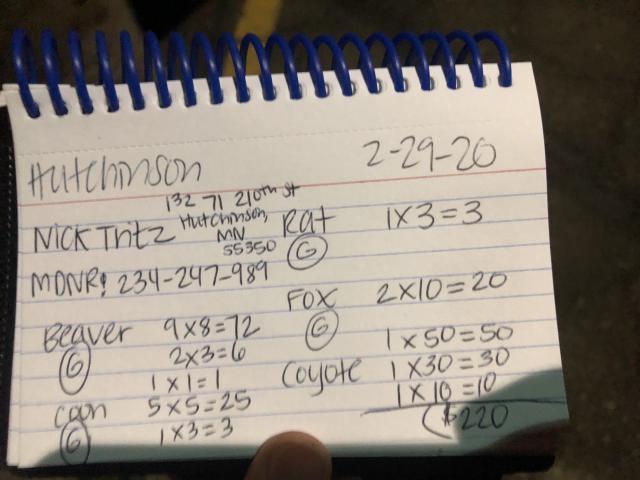 Hutchinson 2-29-20
132 71 210th St
Nick Tritz Hutchinson, MN 55350
MDNR: 234-247-989
Beaver 9x8=72
G 2x3=6
1x1=1
Coon 5x5=25
G 1x3=3
Rat 1x3=3
G
Fox 2x10=20
G
1x50=50
Coyote 1x30=30
1x10=10
$220